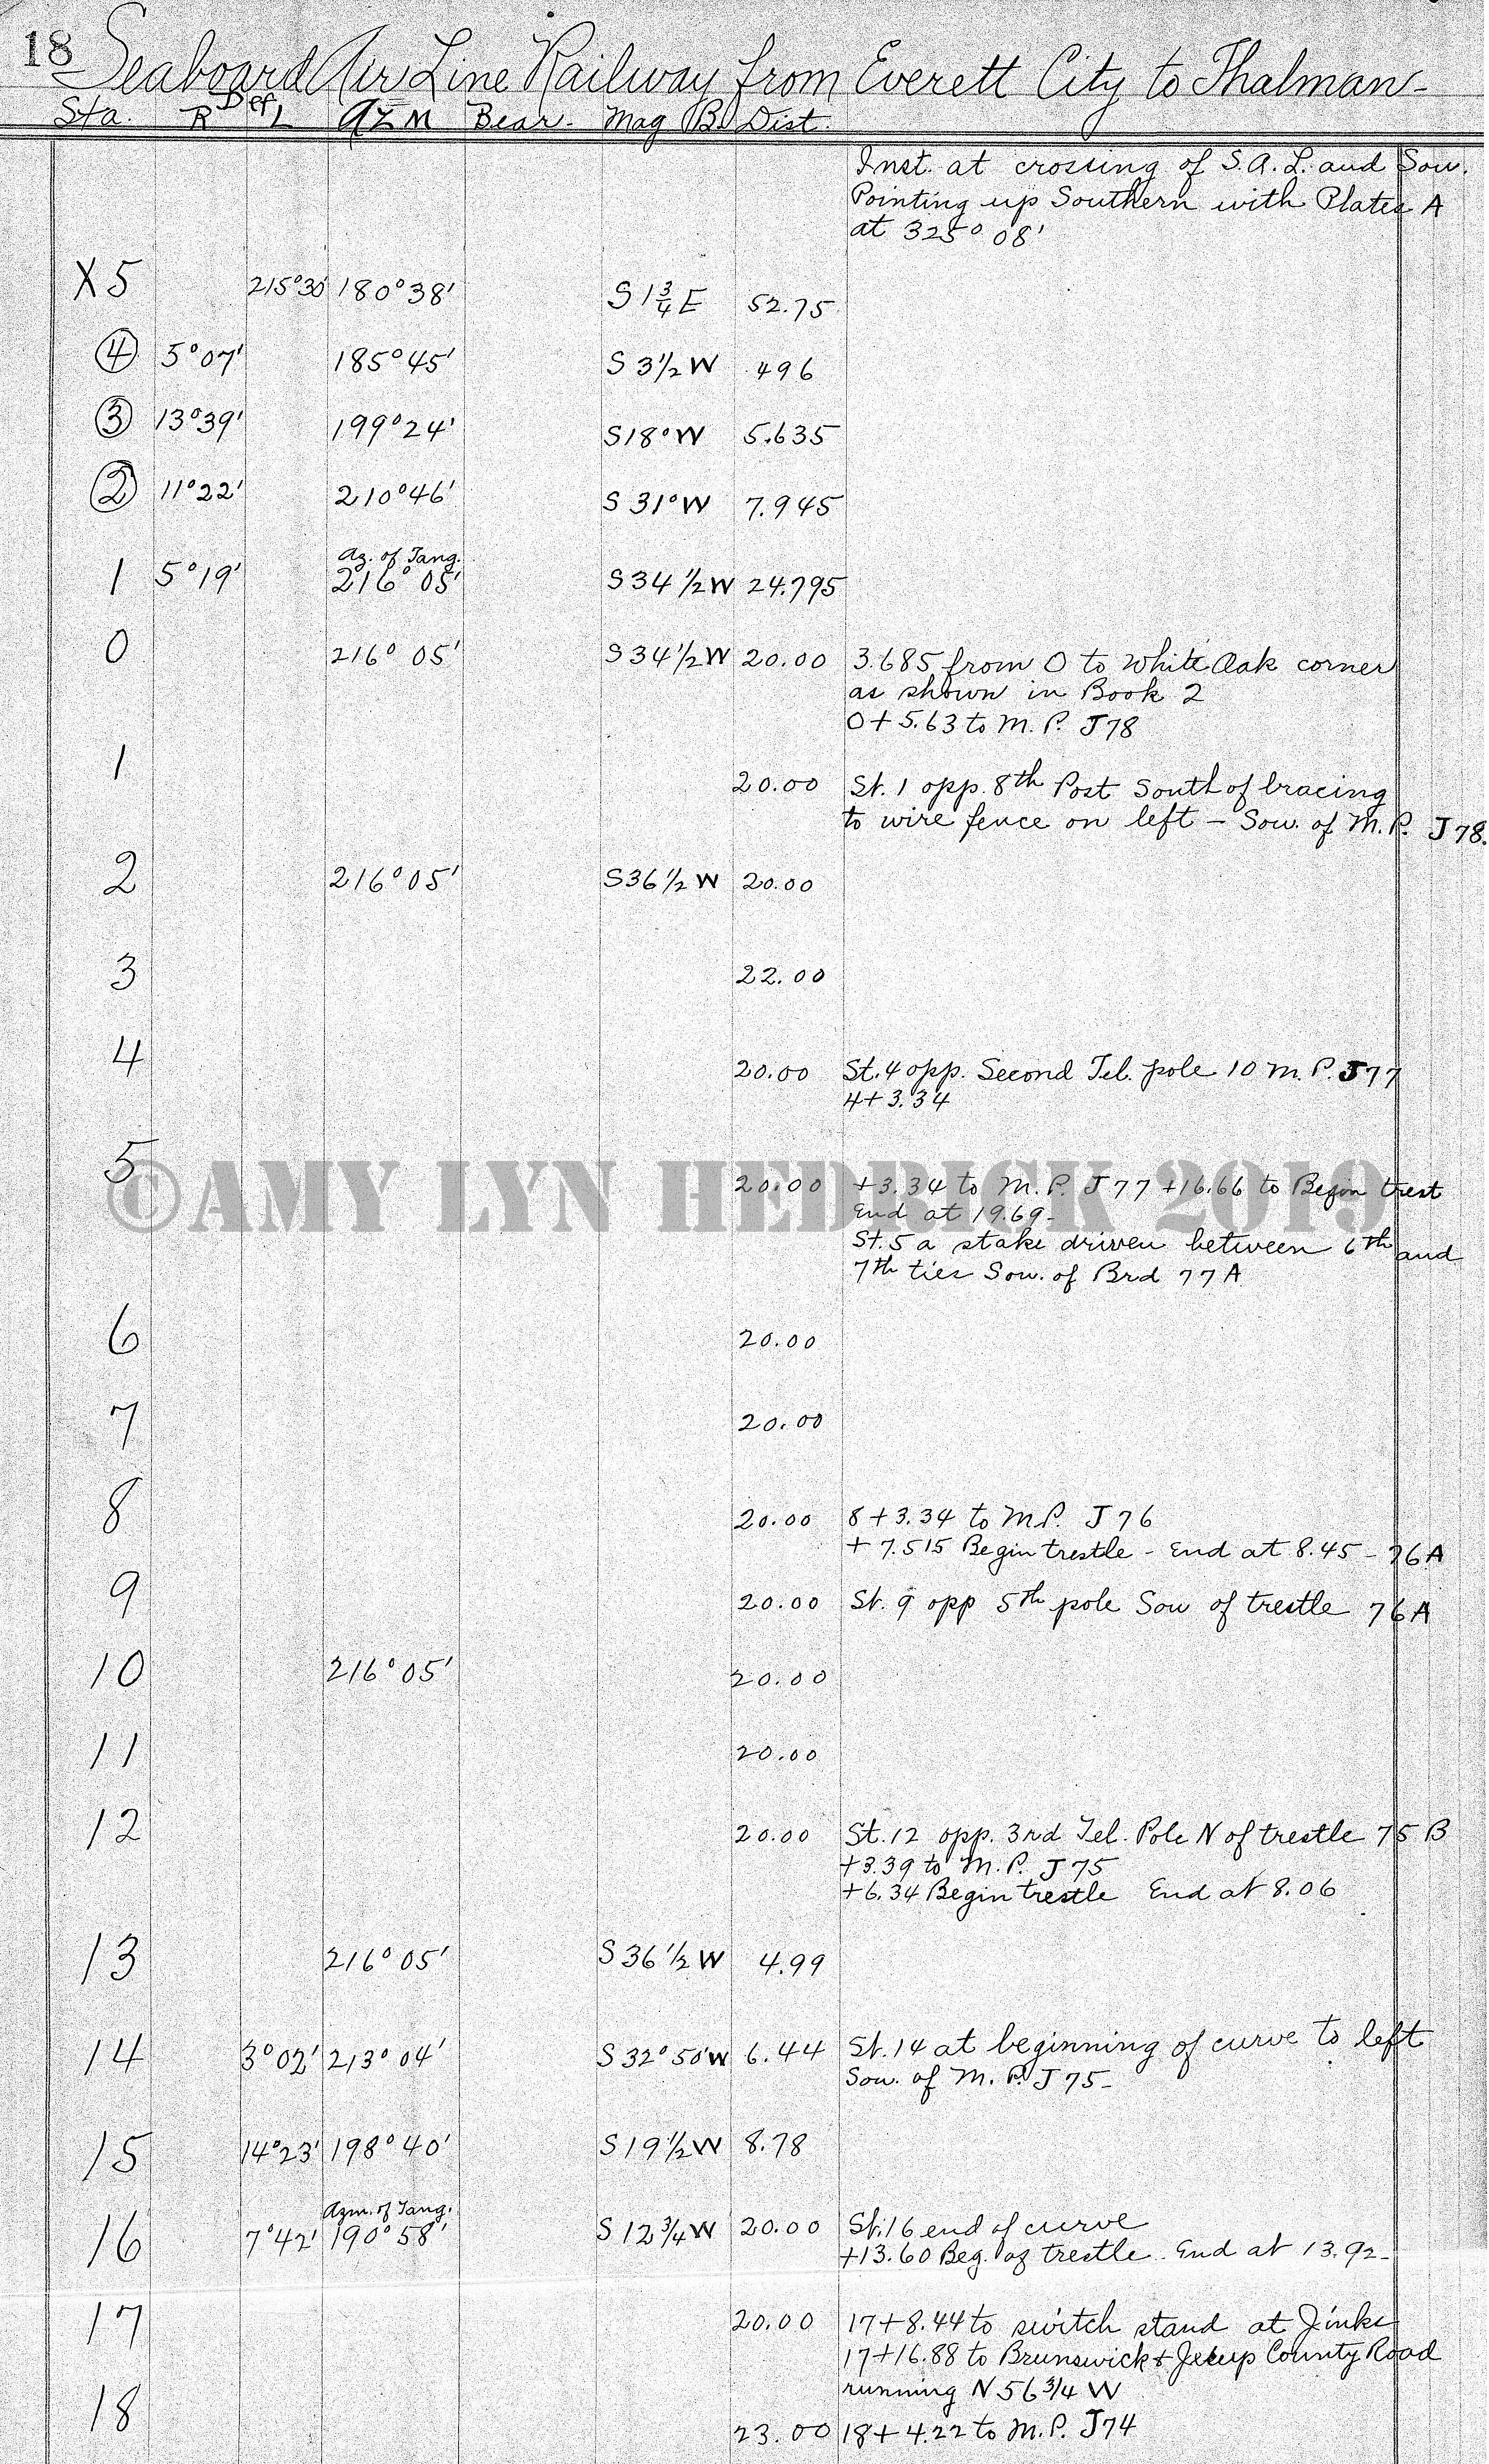 18 Seaboard Air Line Railway from Everett City to Thalman-
Sta. R Def. L AZM Bear. Mag B. Dist.
Inst. at crossing of S.A.L. and Sou.
Pointing up Southern with Plates A
at 325° 08'
X5 215°30' 180°38' S 1 3/4 E 52.75
4 5°07' 185°45' S 3 1/2 W 496
3 13°39' 199°24' S 18° W 5.635
2 11°22' 210°46' S 31° W 7.945
Az. of Tang.
1 5°19' 216° 05' S 34 1/2 W 24.795
0 216° 05' S 34 1/2 W 20.00 3.685 from 0 to White Oak corner
as shown in Book 2
0 + 5.63 to M. P. J78
1
20.00 St. 1 opp. 8th Post South of bracing
to wire fence on left - Sou. of M. P. J78.
2 216° 05' S 36 1/2 W 20.00
3 22.00
4 20.00 St. 4 opp. Second Tel. pole 10 M. P. J77
4+3.34
5
©AMY LYN HEDRICK 2019
20.00 +3.34 to M. P. J77 +16.66 to Begin trest
End at 19.69-
St. 5 a stake driven between 6th and
7th ties Sou. of Brd 77A
6 20.00
7 20.00
8 20.00 8 + 3.34 to M.P. J76
+ 7.515 Begin trestle - End at 8.45 - 76A
9 20.00 St. 9 opp 5th pole Sou of trestle 76A
10 216° 05' 20.00
11 20.00
12 20.00 St. 12 opp. 3rd Tel. Pole N of trestle 75 B
+3.39 to M. P. J75
+6.34 Begin trestle End at 8.06
13 216° 05' S 36 1/2 W 4.99
14 3° 02' 213° 04' S 32° 50' W 6.44 St. 14 at beginning of curve to left
Sou. of M. P. J75-
15 14°23' 198° 40' S 19 1/2 W 8.78
Azm. of Tang.
16 7°42' 190° 58' S 12 3/4 W 20.00 St. 16 end of curve
+13.60 Beg. of trestle. End at 13.92-
17 20.00 17+8.44 to switch stand at Jinks
17+16.88 to Brunswick & Jesup County Road
running N 56 3/4 W
18 23.00 18+ 4.22 to M. P. J74